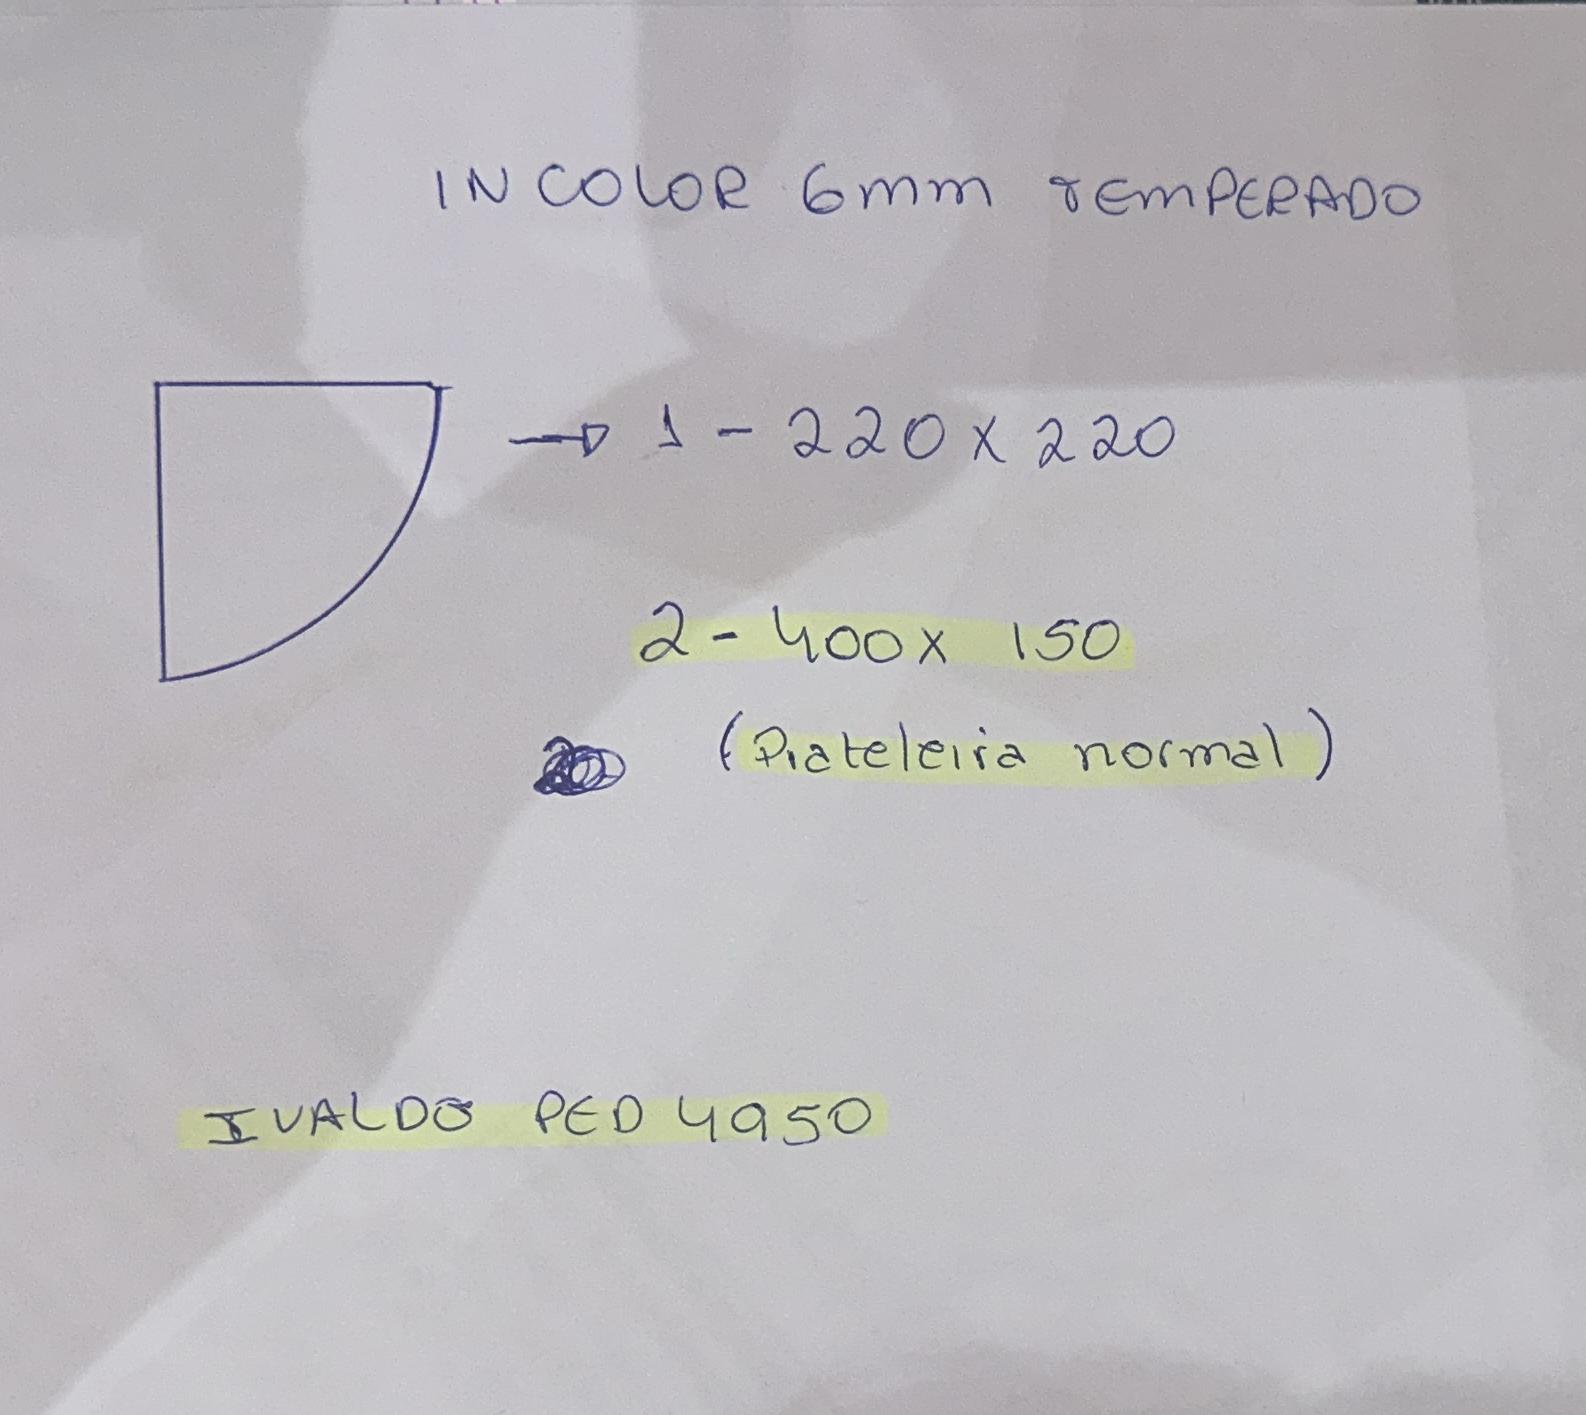 INCOLOR 6mm TEMPERADO
1 - 220 x 220
2 - 400 x 150
(Prateleira normal)
IVALDO PED 4950